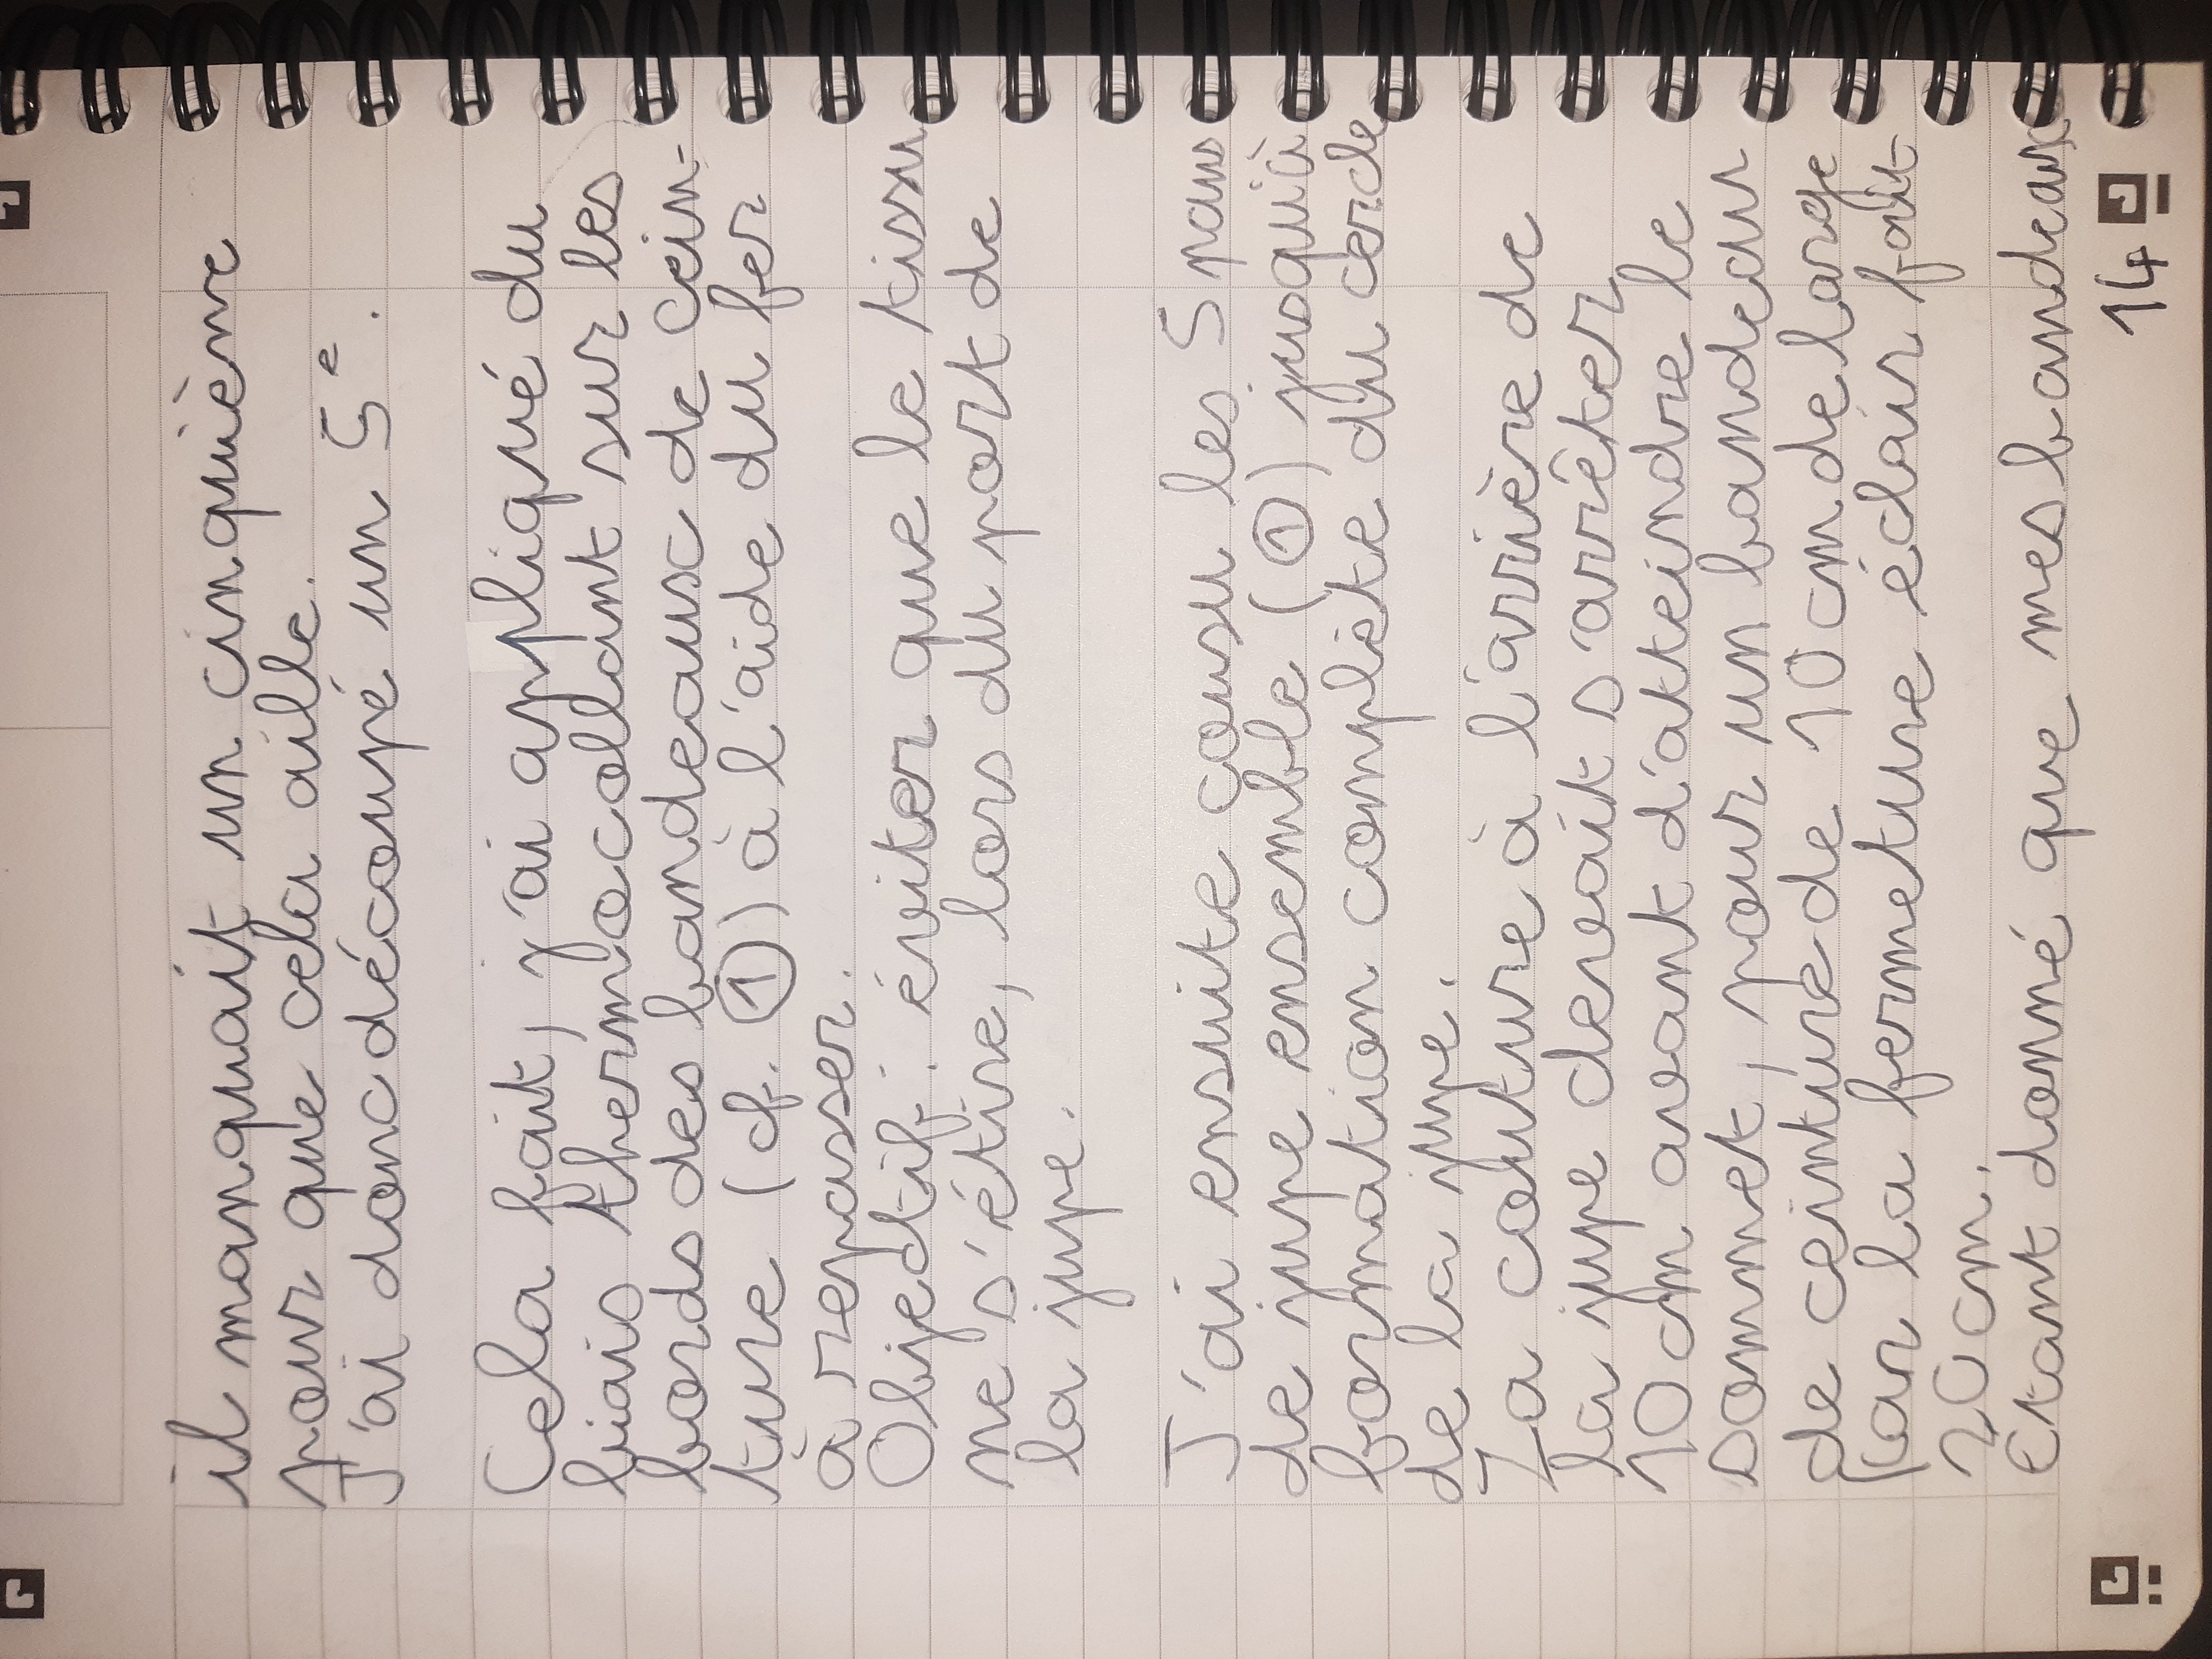 il manquait un cinquième
pour que cela aille.
J'ai donc découpé un 5e.
Cela fait, j'ai appliqué du
biais thermocollant sur les
bords des bandeaux de cein-
ture (cf. ①) à l'aide du fer
à repasser.
Objectif : éviter que le tissu
ne s'étire, lors du port de
la jupe.
J'ai ensuite cousu les 5 pans
de jupe ensemble (①) jusqu'à
formation complète du cercle
de la jupe.
La couture à l'arrière de
la jupe devait s'arrêter
10 cm avant d'atteindre le
sommet, pour un bandeau
de ceinture de 10 cm de large
(car la fermeture éclair fait
20 cm.
Etant donné que mes bandeaux
14